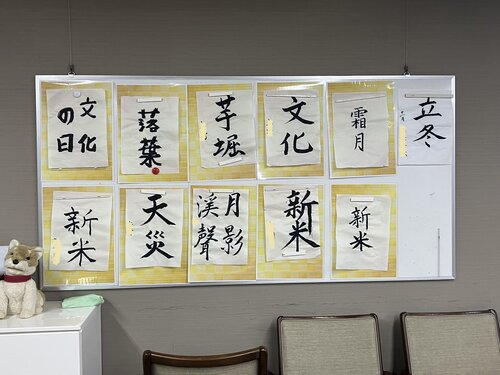 文化
の日
落葉
芋堀
文化
霜月
立冬
新米
天災
月影
溪聲
新米
新米